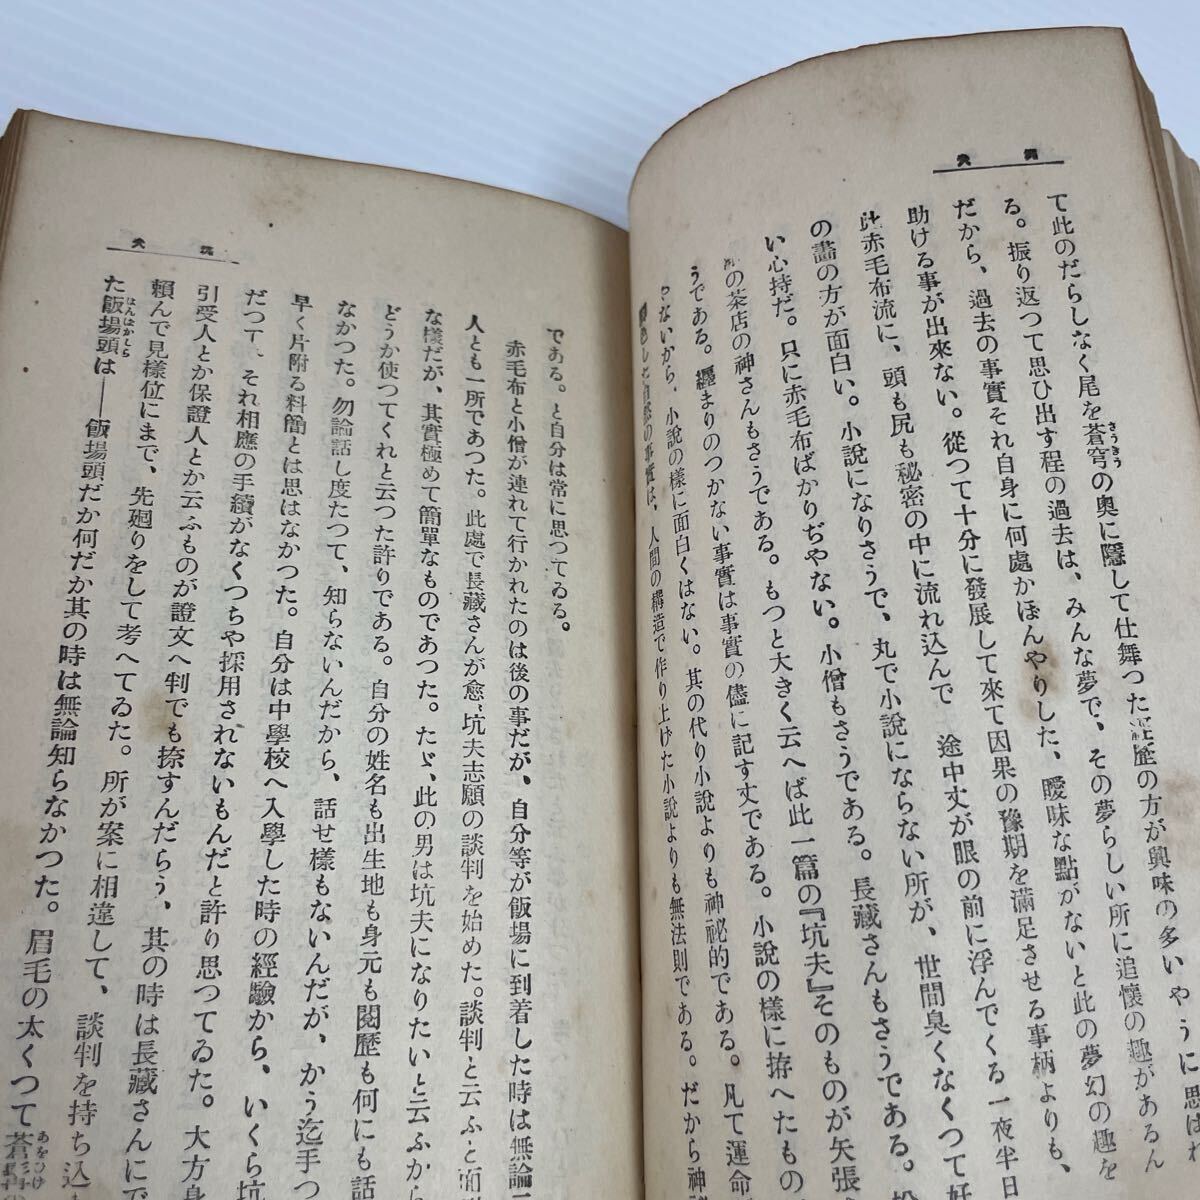 坑夫
て此のだらしなく尾を蒼穹の奥に隱して仕舞つた經歷の方が興味の多いやうに思はれ
る。振り返つて思ひ出す程の過去は、みんな夢で、その夢らしい所に追懷の趣があるん
だから、過去の事實それ自身に何處かぼんやりした、曖昧な點がないと此の夢幻の趣を
助ける事が出來ない。從つて十分に發展して來て因果の豫期を滿足させる事柄よりも、
此赤毛布流に、頭も尻も秘密の中に流れ込んで途中丈が眼の前に浮んでくる一夜半日
の畫の方が面白い。小說になりさうで、丸で小說にならない所が、世間臭くなくつて好
い心持だ。只に赤毛布ばかりぢやない。小僧もさうである。長藏さんもさうである。松
原の茶店の神さんもさうである。もつと大きく云へば此一篇の『坑夫』そのものが矢張
うである。纏まりのつかない事實は事實の儘に記す丈である。小說の樣に拵へたもの
やないから、小說の樣に面白くはない。其の代り小說よりも神祕的である。凡て運命
色した自然の事實は、人間の構造で作り上げた小說よりも無法則である。だから神祕
坑夫
である。と自分は常に思つてゐる。
赤毛布と小僧が連れて行かれたのは後の事だが、自分等が飯場に到着した時は無論二
人とも一所であつた。此處で長藏さんが愈、坑夫志願の談判を始めた。談判と云ふと面
な樣だが、其實極めて簡單なものであつた。たゞ、此の男は坑夫になりたいと云ふから
どうか使つてくれと云つた許りである。自分の姓名も出生地も身元も閱歷も何にも話
なかつた。勿論話し度たつて、知らないんだから、話せ樣もないんだが、かう迄手つ
早く片附る料簡とは思はなかつた。自分は中學校へ入學した時の經驗から、いくら坑
だつて、それ相應の手續がなくつちや採用されないもんだと許り思つてゐた。大方身
引受人とか保證人とか云ふものが證文へ判でも捺すんだらう、其の時は長藏さんにで
賴んで見樣位にまで、先廻りをして考へてゐた。所が案に相違して、談判を持ち込
た飯場頭は――飯場頭だか何だか其の時は無論知らなかつた。眉毛の太くつて蒼髯の